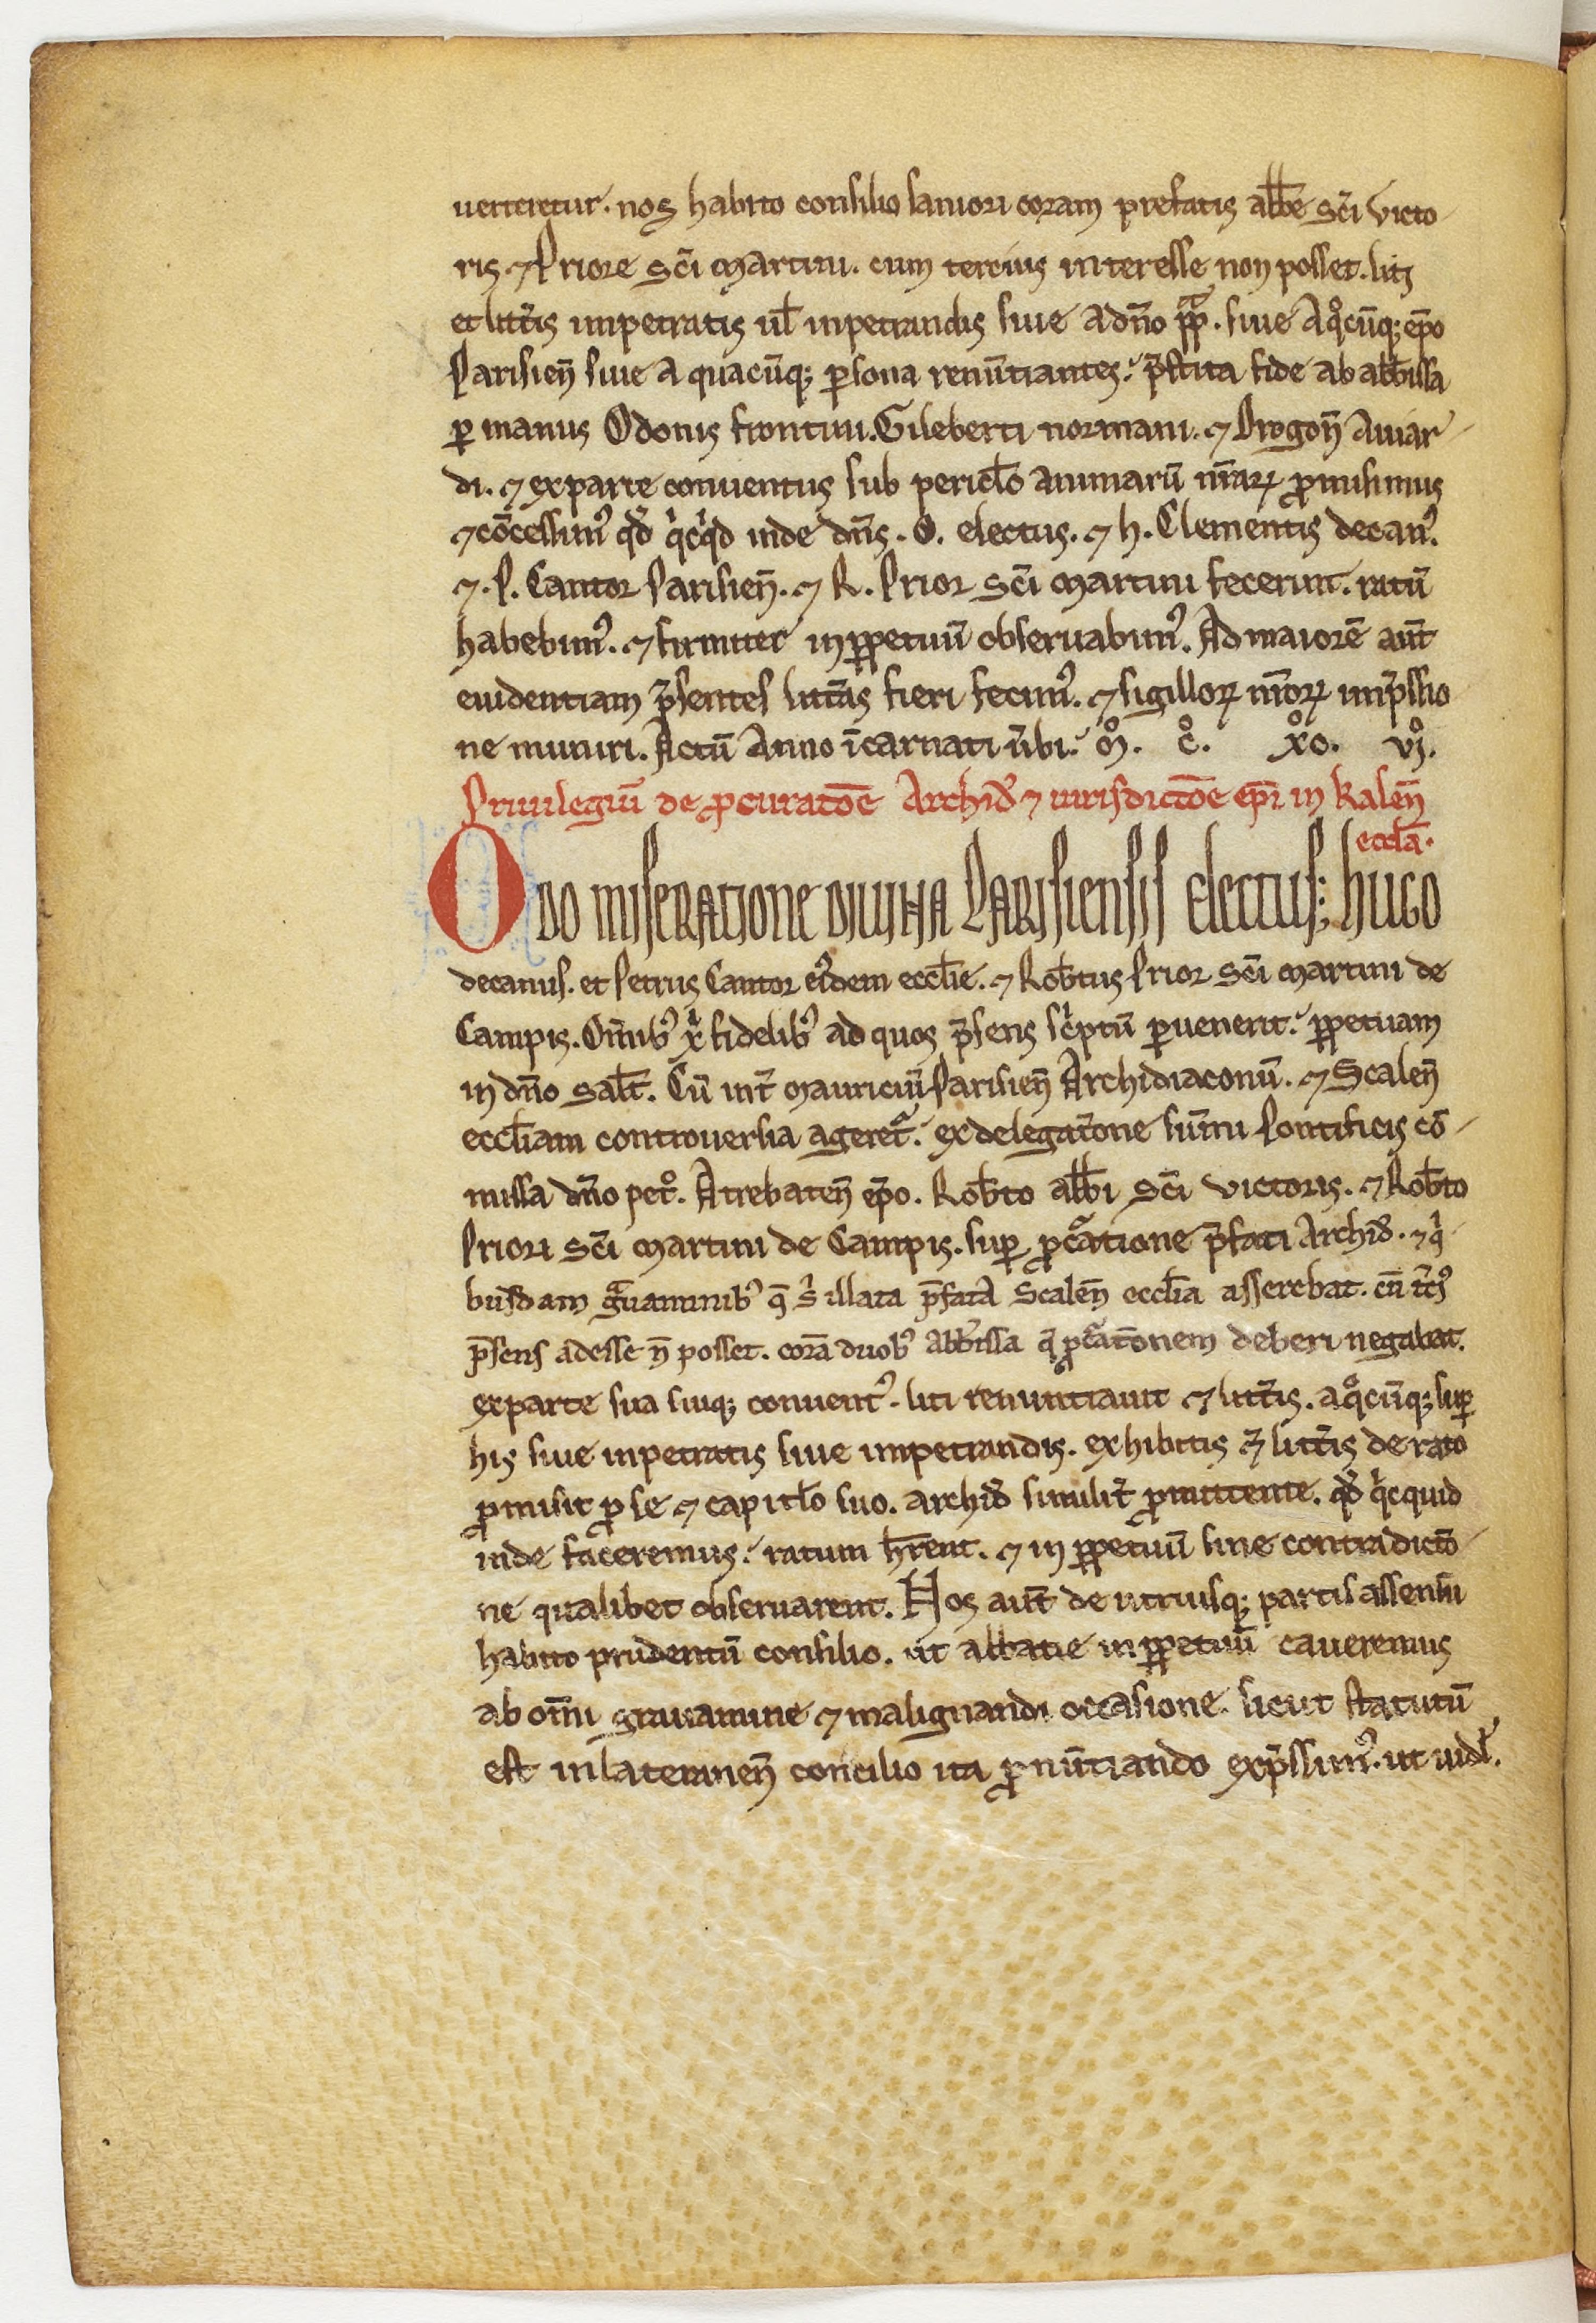 uerteretur. nos habito consilio saniori coram prefatis abb̄e sc̄i victo-
ris. ⁊ Priore sc̄i Martini. cum tercius interesse non posset. liti
et litt̄is impetratis ul̄ inpetrandis siue a dn̄o pp̄. siue a qͦcūq; ep̄o
Parisien̄ siue a quacūq; ꝑsona renūtiantes. p̄stita fide ab abb̄issa
ꝑ manus Odonis frontini. Gileberti normani. ⁊ Drogon̄ Auiar-
di. ⁊ ex parte conuentus sub pericl̄o animarū nr̄aꝝ ꝓmisimus
⁊ cōcessimꝰ qd̄ qͥcqͥd inde dn̄s. O. electus. ⁊ h. Clementis decanꝰ.
⁊. P. Cantor Parisien̄. ⁊ R. Prior sc̄i Martini fecerint. ratū
habebimꝰ. ⁊ firmiter in ꝑpetuū obseruabimꝰ. Ad maiorē aūt
euidentiam p̄sentes litt̄as fieri fecimꝰ. ⁊ sigilloꝝ nr̄oꝝ imp̄ssio
ne muniri. Actū Anno īcarnati v̄bi. Mͦ. Cͦ. xͦc. vjͦ.
Priuilegiū de ꝓcuratōe Archid̄ ⁊ iurisdictōe ep̄i in kalen̄
eccl̄a.
Odo miseratione diuina Parisiensis electus; hugo
decanus. et Petrus Cantor eiꝰdem eccl̄ie. ⁊ Rob̄tus Prior sc̄i Martini de
Campis. Om̄ibꝰ xͥ fidelibꝰ ad quos p̄sens scͥptū ꝑuenerit. ꝑpetuam
in dn̄o salt̄. Cū int̄ Mauriciū Parisien̄ Archidiaconū. ⁊ Scalen̄
eccl̄iam controuersia ageret᷑. ex delegat̄one sūmi Pontificis cō-
missa dn̄o petͦ. Atrebaten̄ ep̄o. Rob̄to abb̄i sc̄i victoris. ⁊ Rob̄to
Priori sc̄i Martini de Campis. suꝑ ꝓcͣatione p̄fati Archid̄. ⁊ qͥ-
busdam gͣuaminibꝰ q̄ sͥ illata p̄fata Scalen̄ eccl̄ia asserebat. cū t̄ciꝰ
p̄sens adesse n̄ posset. corā duobꝰ abb̄issa q̄ ꝓcͣat̄onem deberi negabat.
ex parte sua suiq; conuentꝰ. liti renuntiauit ⁊ litt̄is. a qͦcūq; suꝑ
his siue inpetratis siue impetrandis. exhibitis ⁊ litt̄is de rato
ꝓmisit ꝓ se ⁊ capitl̄o suo. archid̄ similit̄ ꝓmittente. qd̄ qͥcquid
inde faceremus. ratum hr̄ent. ⁊ in ꝑpetuū sine contradictō-
ne qualibet obseruarent. Nos aut̄ de utriusq; partis assensu
habito prudentū consilio. ut abbatie in ꝑpetuū caueremus
ab om̄i grauamine ⁊ malignandi occasione. sicut statutū
est in lateranen̄ concilio ita ꝓnūtiando exp̄ssimꝰ. ut uidel̄.